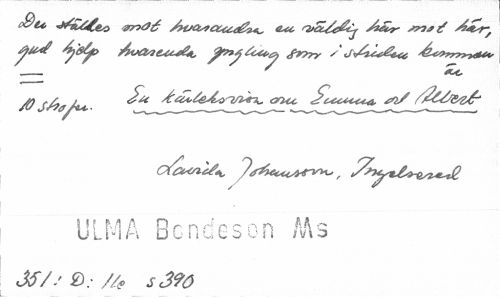 Det ställdes mot hvarandra en väldig här mot här,
gud hjelp hvarenda yngling som i striden kommen
är
10 strofer.
En kärleksvisa om Emma och Albert
Lovisa Johansson, Ingelsered
ULMA Bondeson Ms
351: D: 11e s 390